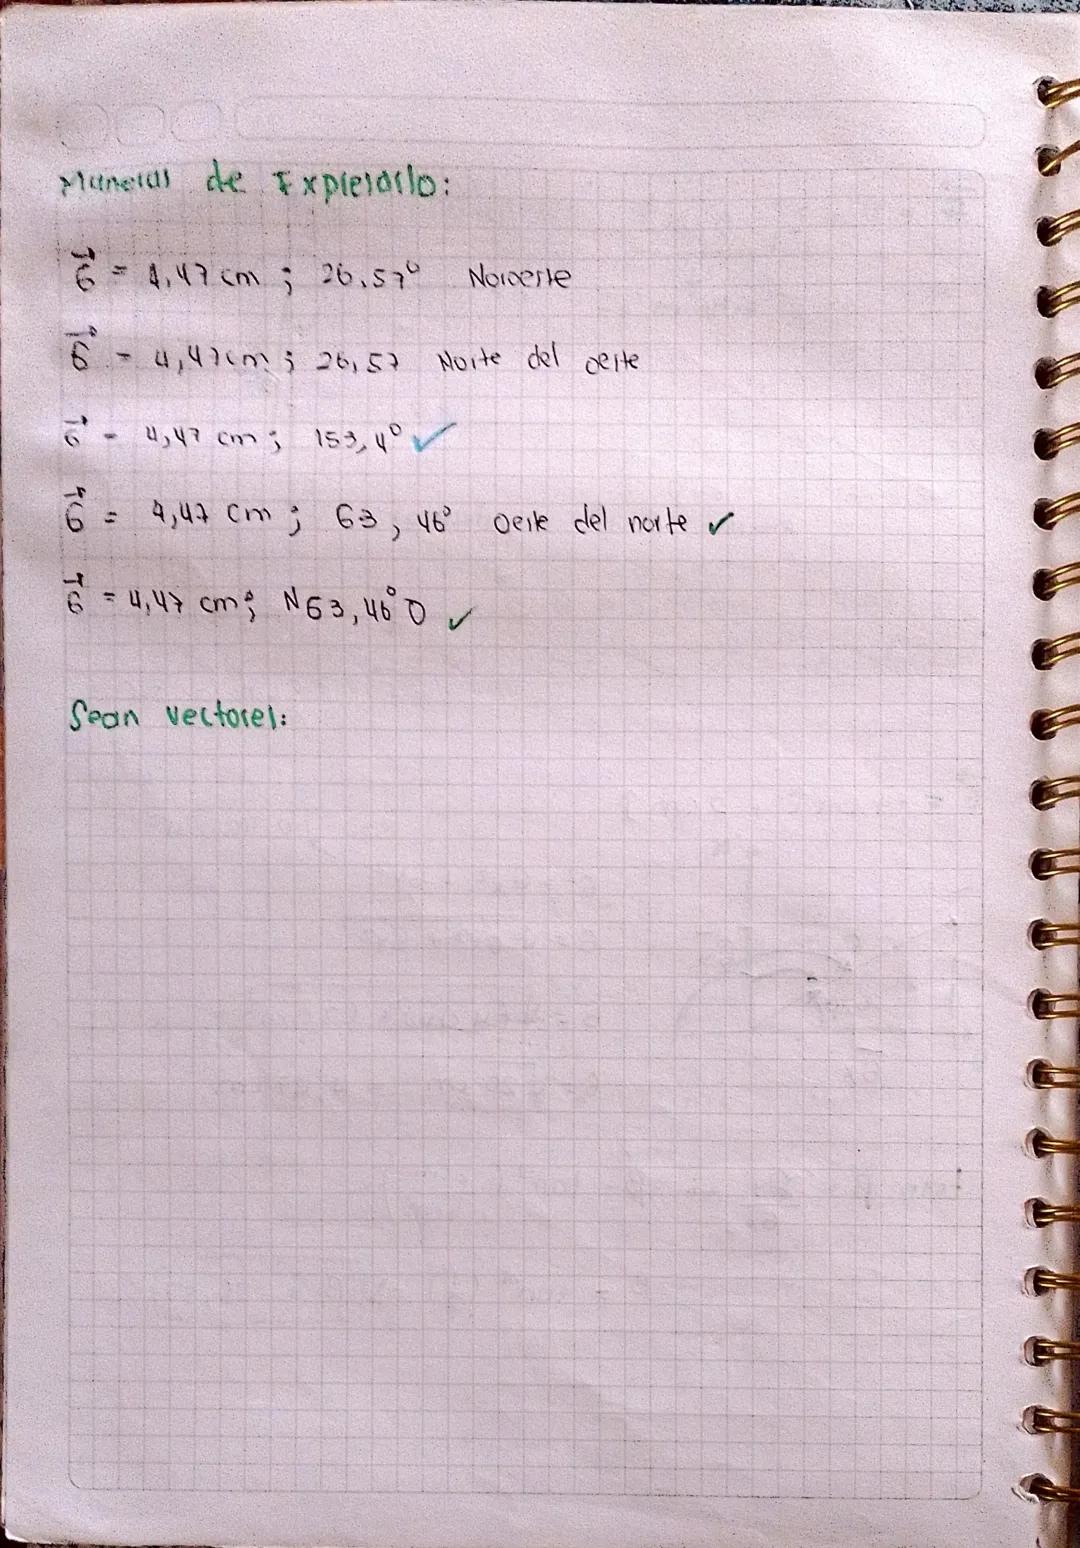 Maneras de Expresarlo:
b⃗ = 4,47 cm ; 26,57° Noroeste
b⃗ = 4,47cm ; 26,57 Norte del oeste
b⃗ = 4,47 cm ; 153,4° ✓
b⃗ = 4,47 cm ; 63,46° oeste del norte ✓
b⃗ = 4,47 cm ; N63,46°O ✓
Sean vectores: